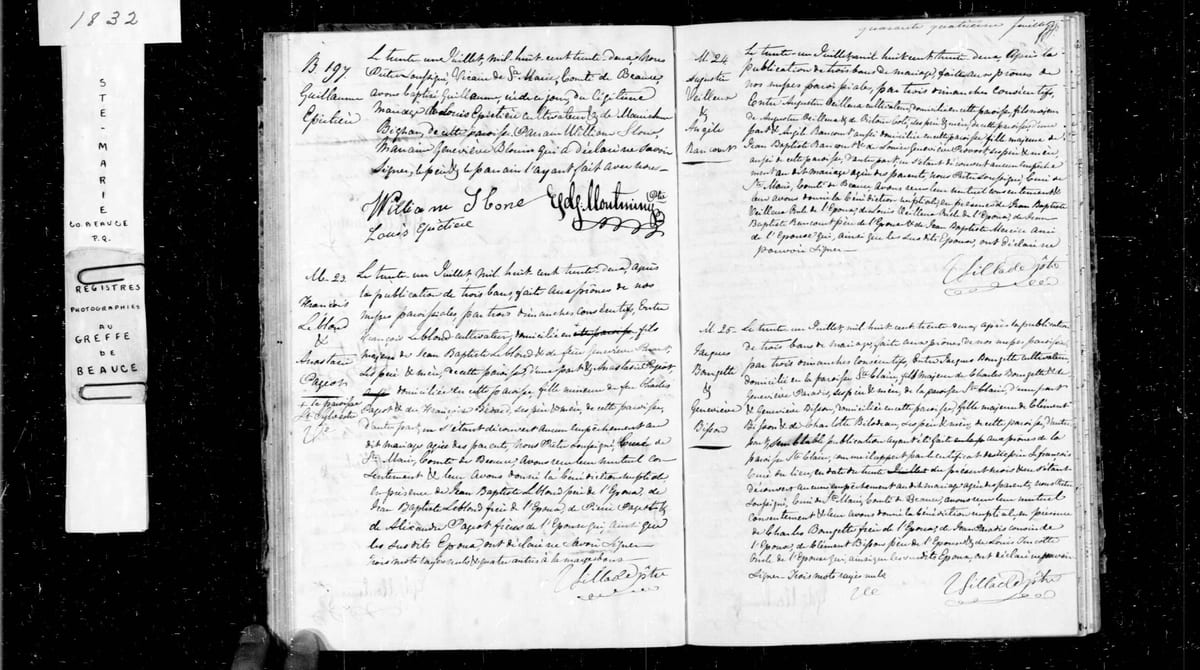 1832
STE-MARIE
CO. BEAUCE
P.Q.
REGISTRES
PHOTOGRAPHIÉS
AU
GREFFE
DE
BEAUCE
B 197
Guillaume
Epictière
Le trente un Juillet, mil huit cent trente deux, Nous
Prêtre soussigné, Vicaire de Ste Marie, Comté de Beauce,
avons baptisé Guillaume, né de ce jour, du légitime
mariage de Louis Epictière cultivateur, & de
de cette paroisse. Parrain William Stone,
Marraine Geneviève Blouin qui a déclaré ne savoir
signer, le père & le parrain l'ayant fait avec nous
William Stone
Louis Epictière
M. 23.
François
Leblond
&
Anastasie
Pagot
Le trente un Juillet mil huit cent trente deux, après
la publication de trois bans, faite aux prônes de nos
messes paroissiales par trois dimanches consécutifs, Entre
François Leblond cultivateur, domicilié en cette paroisse, fils
majeur de Jean Baptiste Leblond & de feue Geneviève
ses père & mère, de cette paroisse, d'une part & Anastasie Pagot
domiciliée en cette paroisse, fille mineure de feu Charles
Pagot & de Françoise ses père & mère, de cette paroisse,
d'autre part, ne s'étant découvert aucun empêchement au
dit mariage agréé des parents, Nous Prêtre soussigné, Curé de
Ste Marie, Comté de Beauce, Avons reçu leur mutuel con
sentement & leur avons donné la bénédiction nuptiale
en présence de Jean Baptiste Leblond père de l'Epoux, de
Jean Baptiste Leblond frère de l'Epoux, de Pierre Pagot &
de Alexandre Pagot frères de l'Epouse qui ainsi que
les susdits Epoux, ont déclaré ne savoir signer
Trois mots rayés nuls & quatre autres à la marge bons
Villade Ptre
quarante quatrième feuillet
M 24
Augustin
Veilleux
&
Angèle
Rancourt
Le trente-un Juillet mil huit cent trente deux, Après la
publication de trois bans de mariage, faite aux prônes de
nos messes paroissiales, par trois dimanches consécutifs,
Entre Augustin Veilleux cultivateur, domicilié en cette paroisse, fils majeur
de Augustin Veilleux & de ses père & mère, de cette paroisse d'une
part & Angèle Rancourt aussi domiciliée en cette paroisse, fille majeure de
Jean Baptiste Rancourt & de Louise Geneviève ses père & mère,
aussi de cette paroisse, d'autre part, ne s'étant découvert aucun empêche
ment au dit mariage agréé des parents, nous Prêtre soussigné, Curé de
Ste Marie, Comté de Beauce, Avons reçu leur mutuel consentement &
leur avons donné la bénédiction nuptiale, en présence de Jean Baptiste
Veilleux Oncle de l'Epoux, de Louis Veilleux Oncle de l'Epoux, de Jean
Baptiste Rancourt père de l'Epouse & de Jean Baptiste Mercier ami
de l'Epouse qui, ainsi que les susdits Epoux, ont déclaré ne
pouvoir signer
Villade Ptre
M 25.
Jacques
&
Geneviève
Bisson
Le trente un Juillet, mil huit cent trente deux, après la publication
de trois bans de mariage, faite aux prônes, de nos messes paroissiales,
par trois dimanches consécutifs, Entre Jacques cultivateur,
domicilié en la paroisse Ste Claire, fils majeur de Charles & de
Geneviève Paradis, ses père & mère de la paroisse Ste Claire, d'une part
& Geneviève Bisson, domiciliée en cette paroisse, fille majeure de Clément
Bisson & de Charlotte Bilodeau, ses père & mère, de cette paroisse, d'autre
part, publication ayant été faite aux prônes de la
paroisse Ste Claire, comme il appert par le certificat
Curé du lieu, en date du trente du présent mois & ne s'étant
découvert aucun empêchement au dit mariage agréé des parents, nous Prêtre
soussigné, Curé de Ste Marie, Comté de Beauce, avons reçu leur mutuel
consentement & leur avons donné la bénédiction nuptiale, en présence
de Charles frère de l'Epoux, de Jean Paradis cousin de
l'Epoux, de Clément Bisson père de l'Epouse, & de Louis
Oncle de l'Epouse qui, ainsi que les susdits Epoux, ont déclaré ne pouvoir
signer. Trois mots rayés nuls
Villade Ptre